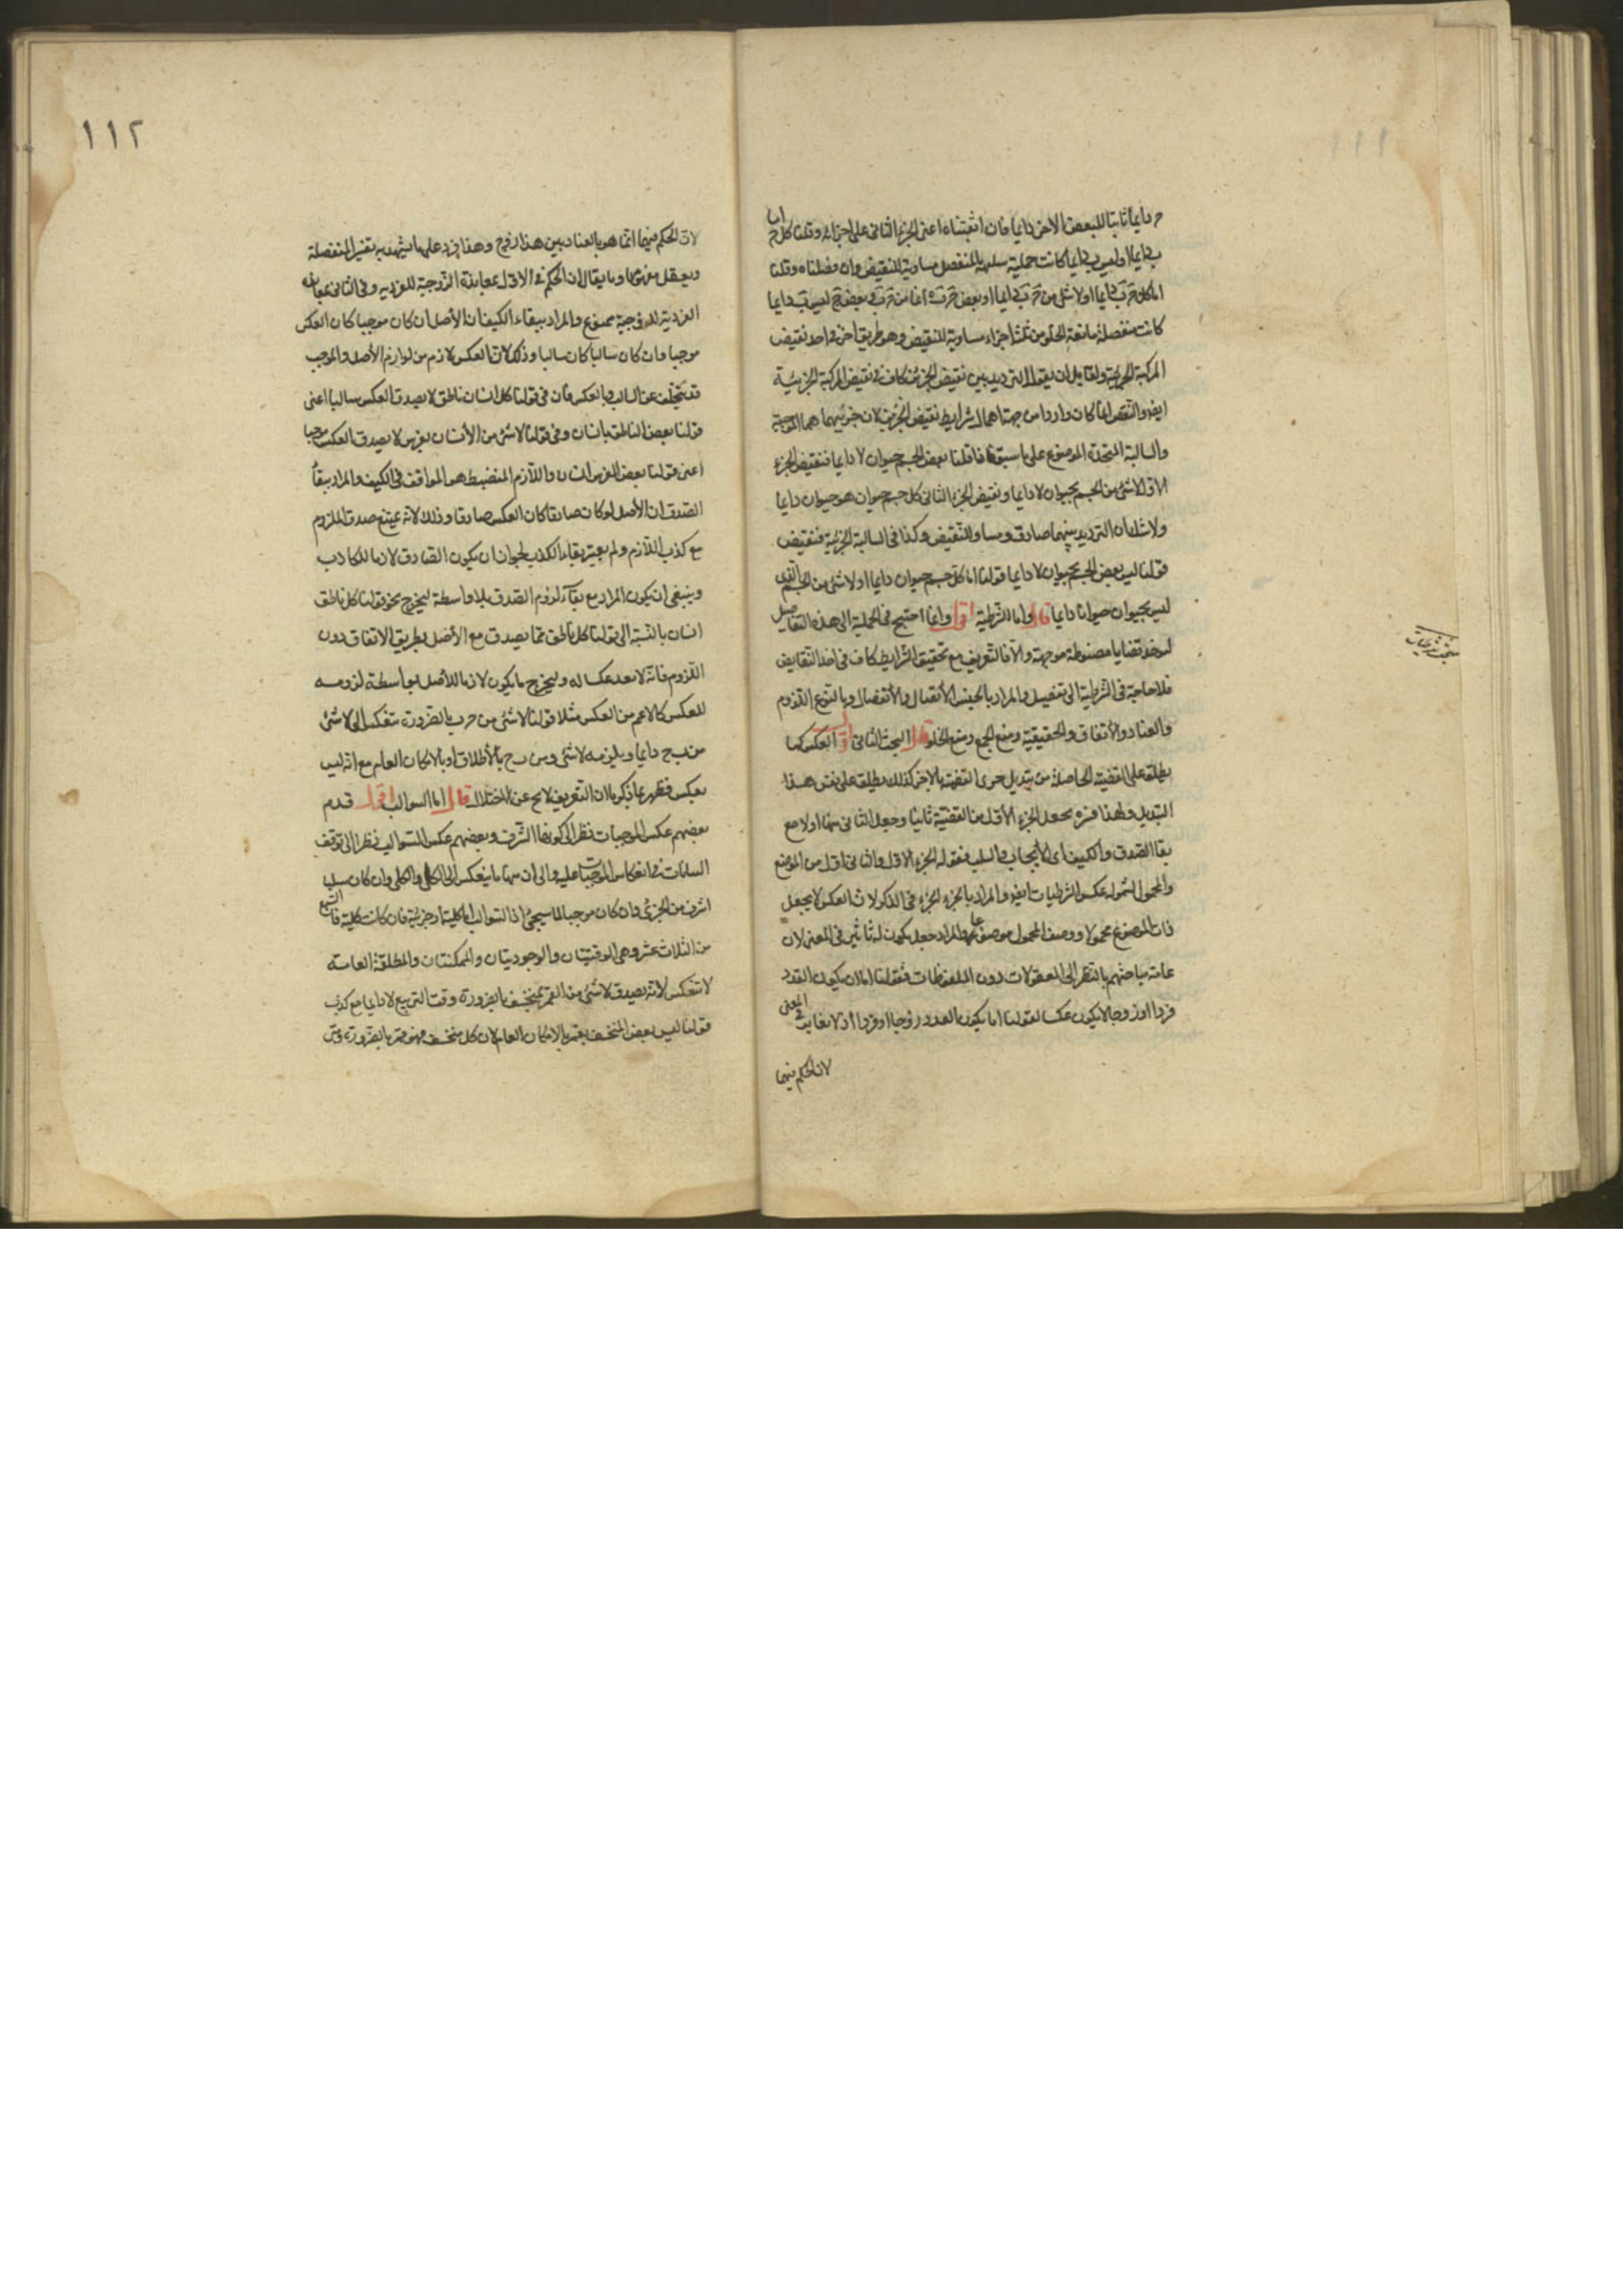 ج دايما ثابتا للبعض الاخر دايما فان اثبتناه اعنى الجزء الثانى على اجزائه وقلنا كل ج اما
ب دايما او ليس ب دايما كانت حملية سلبية بالمنفصل مساوية للنقيض وان فصلناه وقلنا
اما كل ج ب دايما او لا شئ من ج ب دايما او بعض ج ب دايما بعض ج ليس ب دايما
كانت منفصلة مانعة الخلو من ثلثة اجزاء مساوية للنقيض وهو طريق اخر فى اخذ نقيض
المركبة الجزئية ولقايل ان يقول الترديد بين نقيض الجزئين كاف فى نقيض المركبة الجزئية
ايضا والنقض انما كان واردا من جهة اهمال شرايط نقيض الجزئين لان جزئيهما هما الموجبة
والسالبة المتحدة الموضوع على ما سبق فاذا قلنا بعض الجسم حيوان لا دايما فنقيض الجزء
الاول لا شئ من الجسم بحيوان دايما ونقيض الجزء الثانى كل جسم حيوان هو حيوان دايما
ولا شك ان الترديد بينهما صادق ومساو للنقيض وكذا فى السالبة الجزئية فنقيض
قولنا ليس بعض الجسم بحيوان لا دايما قولنا اما كل جسم حيوان دايما او لا شئ من الجسم الذى
ليس بحيوان حيوانا دايما قال واما الشرطية اقول وانما احتيج فى الحملية الى هذه التفاصيل
لتوخذ قضايا مضبوطة موجهة والا فالتعريف مع تحقيق الشرايط كاف فى اخذ النقايض
فلا حاجة فى الشرطية الى تفصيل والمراد بالجنس الأتصال والأنفصال وبالنوع اللزوم
والعناد والأتفاق والحقيقية ومنع الجمع ومنع الخلو قال البحث الثانى اقول العكس كما
يطلق على القضية الحاصلة من تبديل جزئى القضية بالاخر كذلك يطلق على نفس هذا
التبديل ولهذا فسره بجعل الجزء الأول من القضية ثانيا وجعل الثانى منها اولا مع
بقا الصدق والكيف اى الأيجاب والسلب فقوله الجزء الاول والثانى اولى من الموضوع
والمحمول لشموله عكس الشرطيات ايضا والمراد بالجزء الجزء فى الذكر لان العكس لا يجعل
ذات الموضوع محمولا ووصف المحمول موضوعا والمراد جعل يكون له تاثير فى المعنى لان
عامة مباحثهم بالنظر الى المعقولات دون الملفوظات فقولنا اما ان يكون العدد
فردا او زوجا لا يكون عكسا لقولنا اما يكون العدد زوجا او فردا اذ لا تغاير فى المعنى
لان الحكم فيهما
١١٢
لان الحكم فيهما انما هو بالعناد بين هذا زوج وهذا فرد على ما يشهد به تفسير المنفصلة
ويعقل مفهومها وما يقال ان الحكم فى الاول بمعاندة الزوجية للفردية وفى الثانى بمعاندة
الفردية للزوجية ممنوع والمراد ببقاء الكيف ان الأصل ان كان موجبا كان العكس
موجبا وان كان سالبا كان سالبا وذلك لان العكس لازم من لوازم الأصل والموجب
قد يتخلف عن السالب وبالعكس فان فى قولنا كل انسان ناطق لا يصدق العكس سالبا اعنى
قولنا بعض الناطق بانسان وفى قولنا لا شئ من الأنسان بفرس لا يصدق العكس موجبا
اعنى قولنا بعض الفرس انسان واللازم المنضبط هو الموافق فى الكيف والمراد ببقاء
الصدق ان الأصل لو كان صادقا كان العكس صادقا وذلك لانه يمتنع صدق الملزوم
مع كذب اللازم ولم يعتبر بقاء الكذب لجواز ان يكون الصادق لازما للكاذب
وينبغى ان يكون المراد مع بقاء لزوم الصدق بلا واسطة ليخرج نحو قولنا كل ناطق
انسان بالنسبة الى قولنا كل ناطق مما يصدق مع الأصل بطريق الاتفاق دون
اللزوم فانه لا يعد عكسا له وليخرج ما يكون لازما للأصل بواسطة لزومه
للعكس كالاعم من العكس مثلا قولنا لا شئ من ج ب بالضرورة تنعكس الى لا شئ
من ب ج دايما ويلزمه لا شئ من ب ج بالأطلاق او بالامكان العام مع انه ليس
بعكس فظهر بما ذكرنا ان التعريف لا يخ عن اختلال قال اما السوالب اقول قدم
بعضهم عكس الموجبات نظرا الى كونها الشرف وبعضهم عكس السوالب نظرا الى توقف
البيانات فى انعكاس الموجبات عليه والى ان منها ما ينعكس الى الكلى والكلى وان كان سلبا
اشرف من الجزئى وان كان موجبا لما سيجئ اذ السوالب اما كلية او جزئية فان كانت كلية فالسبع
من الثلاث عشر وهى الوقتيتان والوجوديتان والممكنتان والمطلقة العامة
لا تنعكس لانه يصدق لا شئ من القمر بمنخسف بالضرورة وقت التربيع لا دايما مع كذب
قولنا ليس بعض المنخسف بقمر بالامكان العام لان كل منخسف فهو قمر بالضرورة